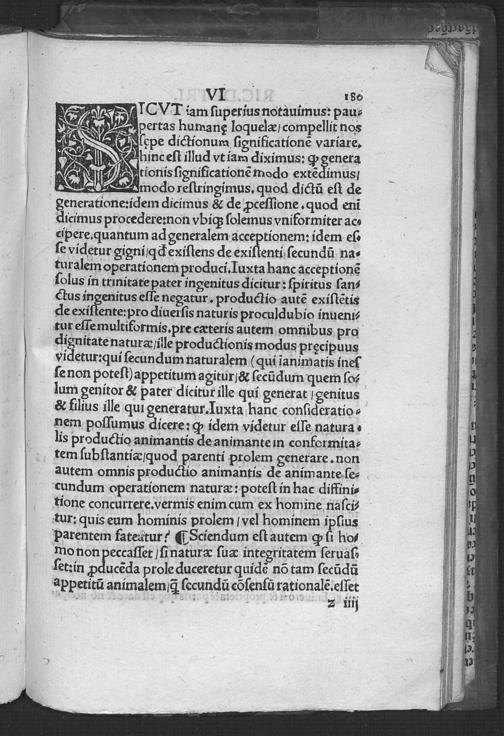 VI 180
SICVT iam superius notauimus: pau/
pertas humanę loquelæ/compellit nos
sępe dictionum significationē variare.
hinc est illud vt iam diximus: ꝙ genera
tionis significationē modo extēdimus/
modo restringimus. quod dictū est de
generatione:idem dicimus & de ꝓcessione. quod enī
dicimus procedere:non vbiqꝫ solemus vniformiter ac/
cipere.quantum ad generalem acceptionem: idem es/
se videtur gigni/qđ existens de existenti secundū na/
turalem operationem produci.Iuxta hanc acceptionē
solus in trinitate pater ingenitus dicitur: spiritus san/
ctus ingenitus esse negatur. productio autē existētis
de existente:pro diuersis naturis proculdubio inueni/
tur esse multiformis.pre cæteris autem omnibus pro
dignitate naturæ/ille productionis modus pręcipuus
videtur:qui secundum naturalem (qui īanimatis ines
se non potest)appetitum agitur/& secūdum quem so/
lum genitor & pater dicitur ille qui generat/genitus
& filius ille qui generatur.Iuxta hanc consideratio/
nem possumus dicere: ꝙ idem videtur esse natura/
lis productio animantis de animante in conformita/
tem substantiæ/quod parenti prolem generare.non
autem omnis productio animantis de animante se/
cundum operationem naturæ: potest in hac diffini/
tione concurrere.vermis enim cum ex homine nasci/
tur: quis eum hominis prolem/vel hominem ipsius
parentem fateatur? ¶Sciendum est autem ꝙ si ho/
mo non peccasset/si naturæ suæ integritatem seruas/
set:in ꝓducēda prole duceretur quidē nō tam secūdū
appetitū animalem/q̄ȝ secundū cōsensū rationalē.esset
z iiij